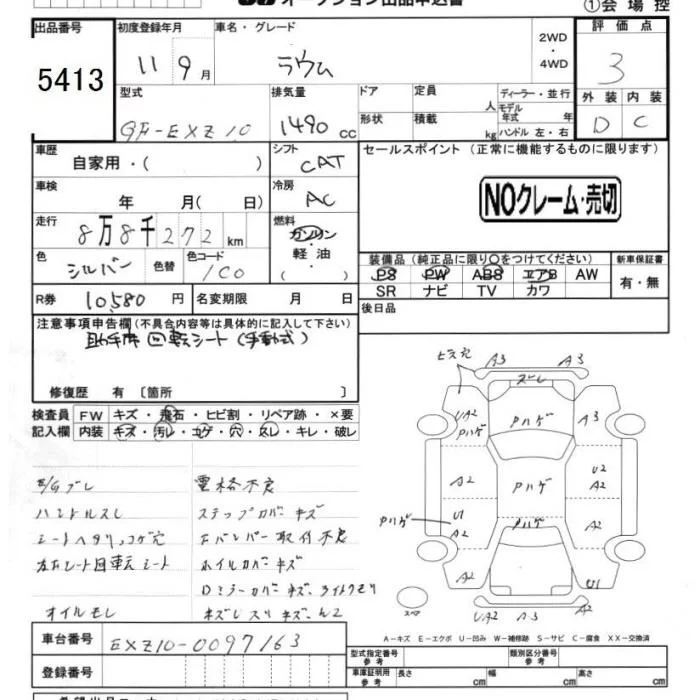 オークション出品申込書
①会場控
出品番号 5413
初度登録年月 11 9月
車名・グレード ラウム
2WD・4WD
評価点 3
型式 GF-EXZ10
排気量 1490 cc
ドア
定員 人
ディーラー・並行
形状
積載 kg
モデル年式 年
ハンドル 左・右
外装 D
内装 C
車歴 自家用・( )
シフト CAT
セールスポイント (正常に機能するものに限ります)
車検 年 月( 日)
冷房 AC
NOクレーム・売切
走行 8万8千272km
燃料 ガソリン・軽油・( )
色 シルバー
色替
色コード 1C0
装備品 (純正品に限り○をつけてください)
PS PW ABS エアB AW
SR ナビ TV カワ
新車保証書 有・無
R券 10,580 円
名変期限 月 日
後日品
注意事項申告欄 (不具合内容等は具体的に記入して下さい)
助手席 回転シート (手動式)
修復歴 有 〔箇所 〕
検査員記入欄
FW キズ・飛石・ヒビ割・リペア跡・×要
内装 キズ・汚レ・コゲ・穴・スレ・キレ・破レ
ハンドルスレ
シートヘタリ、コゲ穴
左右シート回転シート
オイルモレ
ステップカバーキズ
Fバンパー取付不良
ホイルカバーキズ
Dミラーカバーキズ、ライトクモリ
ビス穴 A3 A3
ズレ
UA2 Pハゲ Pハゲ A3
A2 Pハゲ U2 A2
Pハゲ U1 A2 A2
A2 U1
スペア UA2 A3 A2
A-キズ E-エクボ U-凹み W-補修跡 S-サビ C-腐食 XX-交換済
車台番号 EXZ10-0097163
登録番号
型式指定番号 参考
類別区分番号 参考
車庫証明用 参考 長さ cm 幅 cm 高さ cm